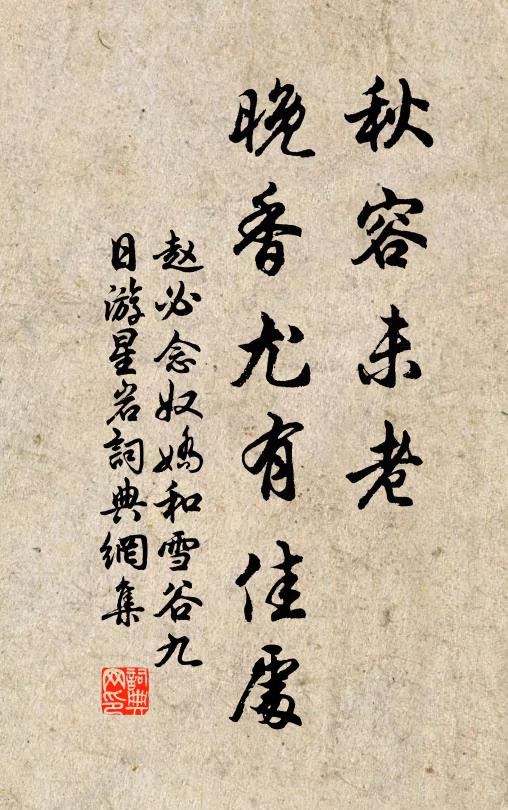 秋容未老
晚香尤有佳處
赵必念奴嬌和雪谷九
日游星岩詞典網集
詞典
网印